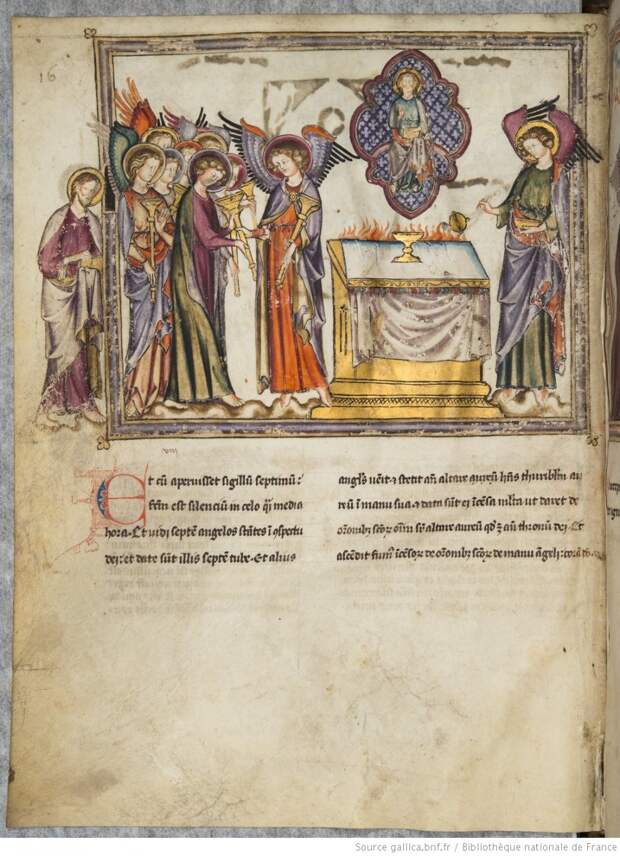 16
viii
Et cū aperuisset sigillū septimū:
fcm̄ est silenciū in celo q̄i media
hora. Et vidi septē angelos stātes ī ꝯspectu
dei: et date sūt illis septē tube. Et alius
angls̄ venit ⁊ stetit an̄ altare aureū hn̄s thuriblm̄ au
reū ī manu sua ⁊ data sūt ei īcēsa ml̄ta ut daret de
or̄onibꝫ sc̄oꝝ oīm sr̄ altare aureū qd̄ ē an̄ thronū dei. Et
ascēdit fumꝰ īcēsoꝝ de or̄onibꝫ sc̄oꝝ de manu āgeli: corā
Source gallica.bnf.fr / Bibliothèque nationale de France